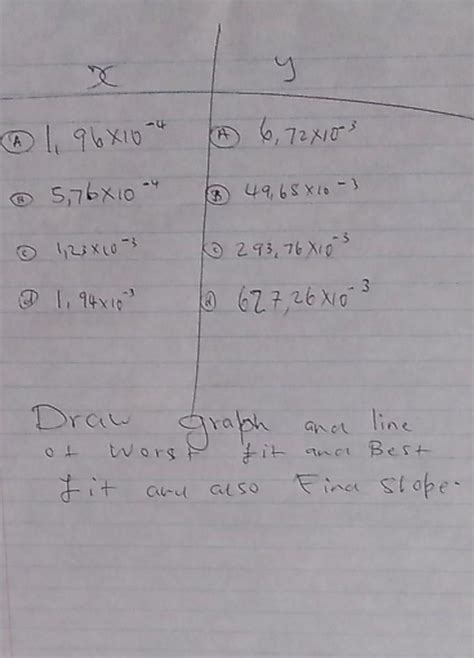 x y
(A) 1,96×10⁻⁴ (A) 6,72×10⁻³
(B) 5,76×10⁻⁴ (B) 49,68×10⁻³
(C) 1,23×10⁻³ (C) 293,76×10⁻³
(d) 1,94×10⁻³ (d) 627,26×10⁻³
Draw graph and line
of worst fit and Best
fit and also Find slope.